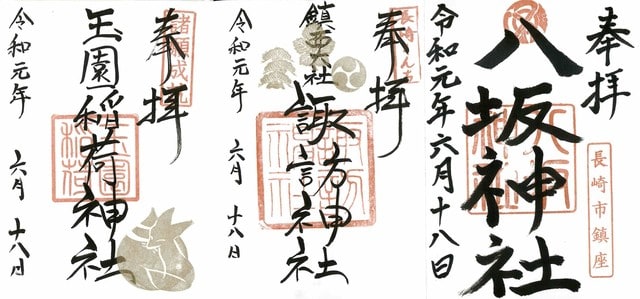 奉拝
諸願成就
玉園稲荷神社
令和元年 六月 十八日
奉拝
鎮西大社
諏訪神社
令和元年 六月 十八日
奉拝
長崎市鎮座
八坂神社
令和元年六月十八日